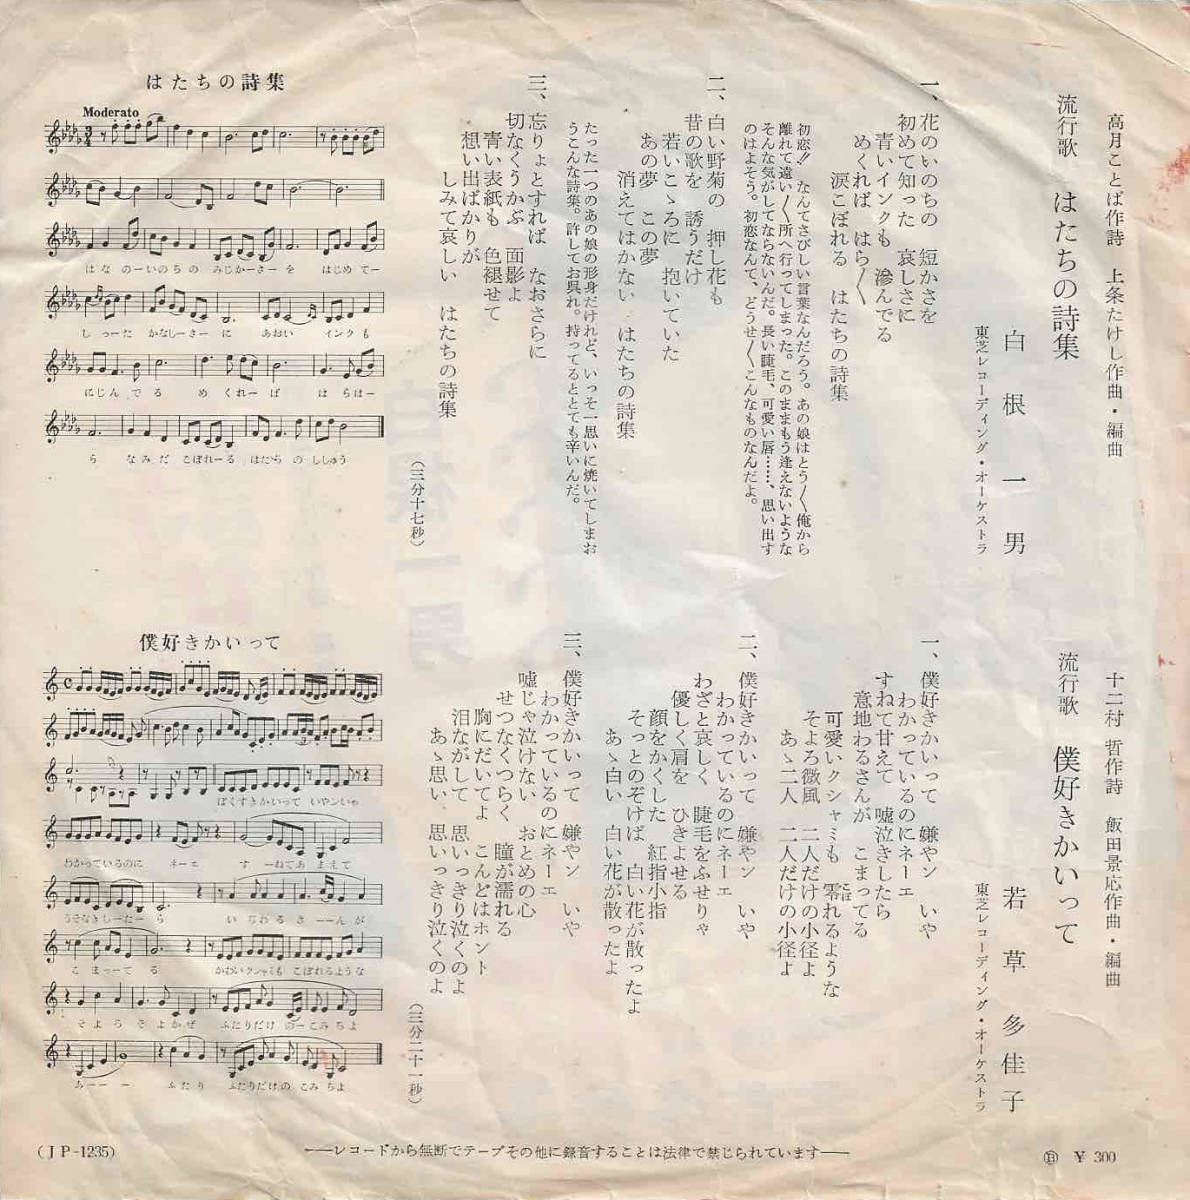 高月ことば作詩　上条たけし作曲・編曲
流行歌　はたちの詩集
白根一男
東芝レコーディング・オーケストラ
一、花のいのちの　短かさを
初めて知った　哀しさに
青いインクも　滲んでる
めくれば　はら〱
涙こぼれる　はたちの詩集
初恋!!　なんてさびしい言葉なんだろう。あの娘はとう〱俺から
離れて遠い〱所へ行ってしまった。このままもう逢えないような
そんな気がしてならないんだ。長い睫毛、可愛い唇……、思い出す
のはよそう。初恋なんて、どうせ〱こんなものなんだよ。
二、白い野菊の　押し花も
昔の歌を　誘うだけ
若いこゝろに　抱いていた
あの夢　この夢
消えてはかない　はたちの詩集
たった一つのあの娘の形身だけれど、いっそ一思いに焼いてしまお
うこんな詩集。許してお呉れ。持ってるととても辛いんだ。
三、忘りょとすれば　なおさらに
切なくうかぶ　面影よ
青い表紙も　色褪せて
想い出ばかりが
しみて哀しい　はたちの詩集
（三分十七秒）
はたちの詩集
Moderato
はなのーいのちの　みじかーさーを　はじめてー
しったー　かなしーさーに　あおい　インクも
にじんでる　めくれーば　はらはー
ら　なみだ　こぼれーる　はたちの　ししゅう
十二村　哲作詩　飯田景応作曲・編曲
流行歌　僕好きかいって
若草多佳子
東芝レコーディング・オーケストラ
一、僕好きかいって　嫌ヤン　いや
わかっているのにネーエ
すねて甘えて　嘘泣きしたら
意地わるさんが　こまってる
可愛いクシャミも　零れるような
こぼ
そよろ微風　二人だけの小径よ
あゝ二人　二人だけの小径よ
二、僕好きかいって　嫌ヤン　いや
わかっているのにネーエ
わざと哀しく　睫毛をふせりゃ
優しく肩を　ひきよせる
顔をかくした　紅指小指
そっとのぞけば　白い花が散ったよ
あゝ白い　白い花が散ったよ
三、僕好きかいって　嫌ヤン　いや
わかっているのにネーエ
嘘じゃ泣けない　おとめの心
せつなくつらく　瞳が濡れる
胸にだいてよ　こんどはホント
泪ながして　思いっきり泣くのよ
あゝ思い　思いっきり泣くのよ
（三分二十一秒）
僕好きかいって
ぼくすきかいって　いやンいや
わかっているのに　ネーエ　すーねてあまえて
うそなきしーたーら　いじわるさーーんが
こまーってる　かわいクシャミも　こぼれるような
そよろそよかぜ　ふたりだけのーこみちよ
あーーー　ふたり　ふたりだけの　こみちよ
(JP-1235)
――レコードから無断でテープその他に録音することは法律で禁じられています――
Ⓑ ￥300